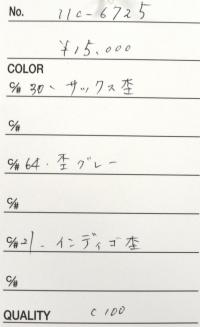 No. 11c-6725
¥15,000
COLOR
C/# 30、サックス杢
C/#
C/# 64. 杢グレー
C/#
C/# 21. インディゴ杢
C/#
QUALITY C100